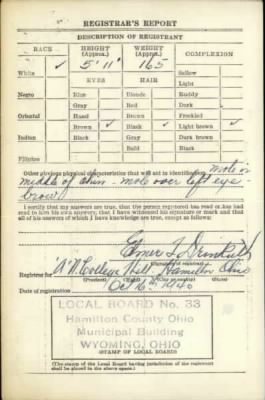 REGISTRAR'S REPORT
DESCRIPTION OF REGISTRANT
RACE HEIGHT (Approx.) WEIGHT (Approx.) COMPLEXION
White ✓ 5' 11" 165 Sallow
Light
EYES HAIR
Negro Blue Blonde Ruddy
Gray Red Dark
Oriental Hazel Brown Freckled
Brown ✓ Black ✓ Light brown ✓
Indian Black Gray Dark brown
Bald Black
Filipino
Other obvious physical characteristics that will aid in identification mole in
middle of chin - mole over left eye-
brow
I certify that my answers are true; that the person registered has read or has had
read to him his own answers; that I have witnessed his signature or mark and that
all of his answers of which I have knowledge are true, except as follows:
Elmer
Registrar for College Hill Hamilton Ohio
(Precinct)
Date of registration Oct 16th 1940
LOCAL BOARD No. 33
Hamilton County Ohio
Municipal Building
WYOMING, OHIO
(STAMP OF LOCAL BOARD)
(The stamp of the Local Board having jurisdiction of the registrant
shall be placed in the above space.)